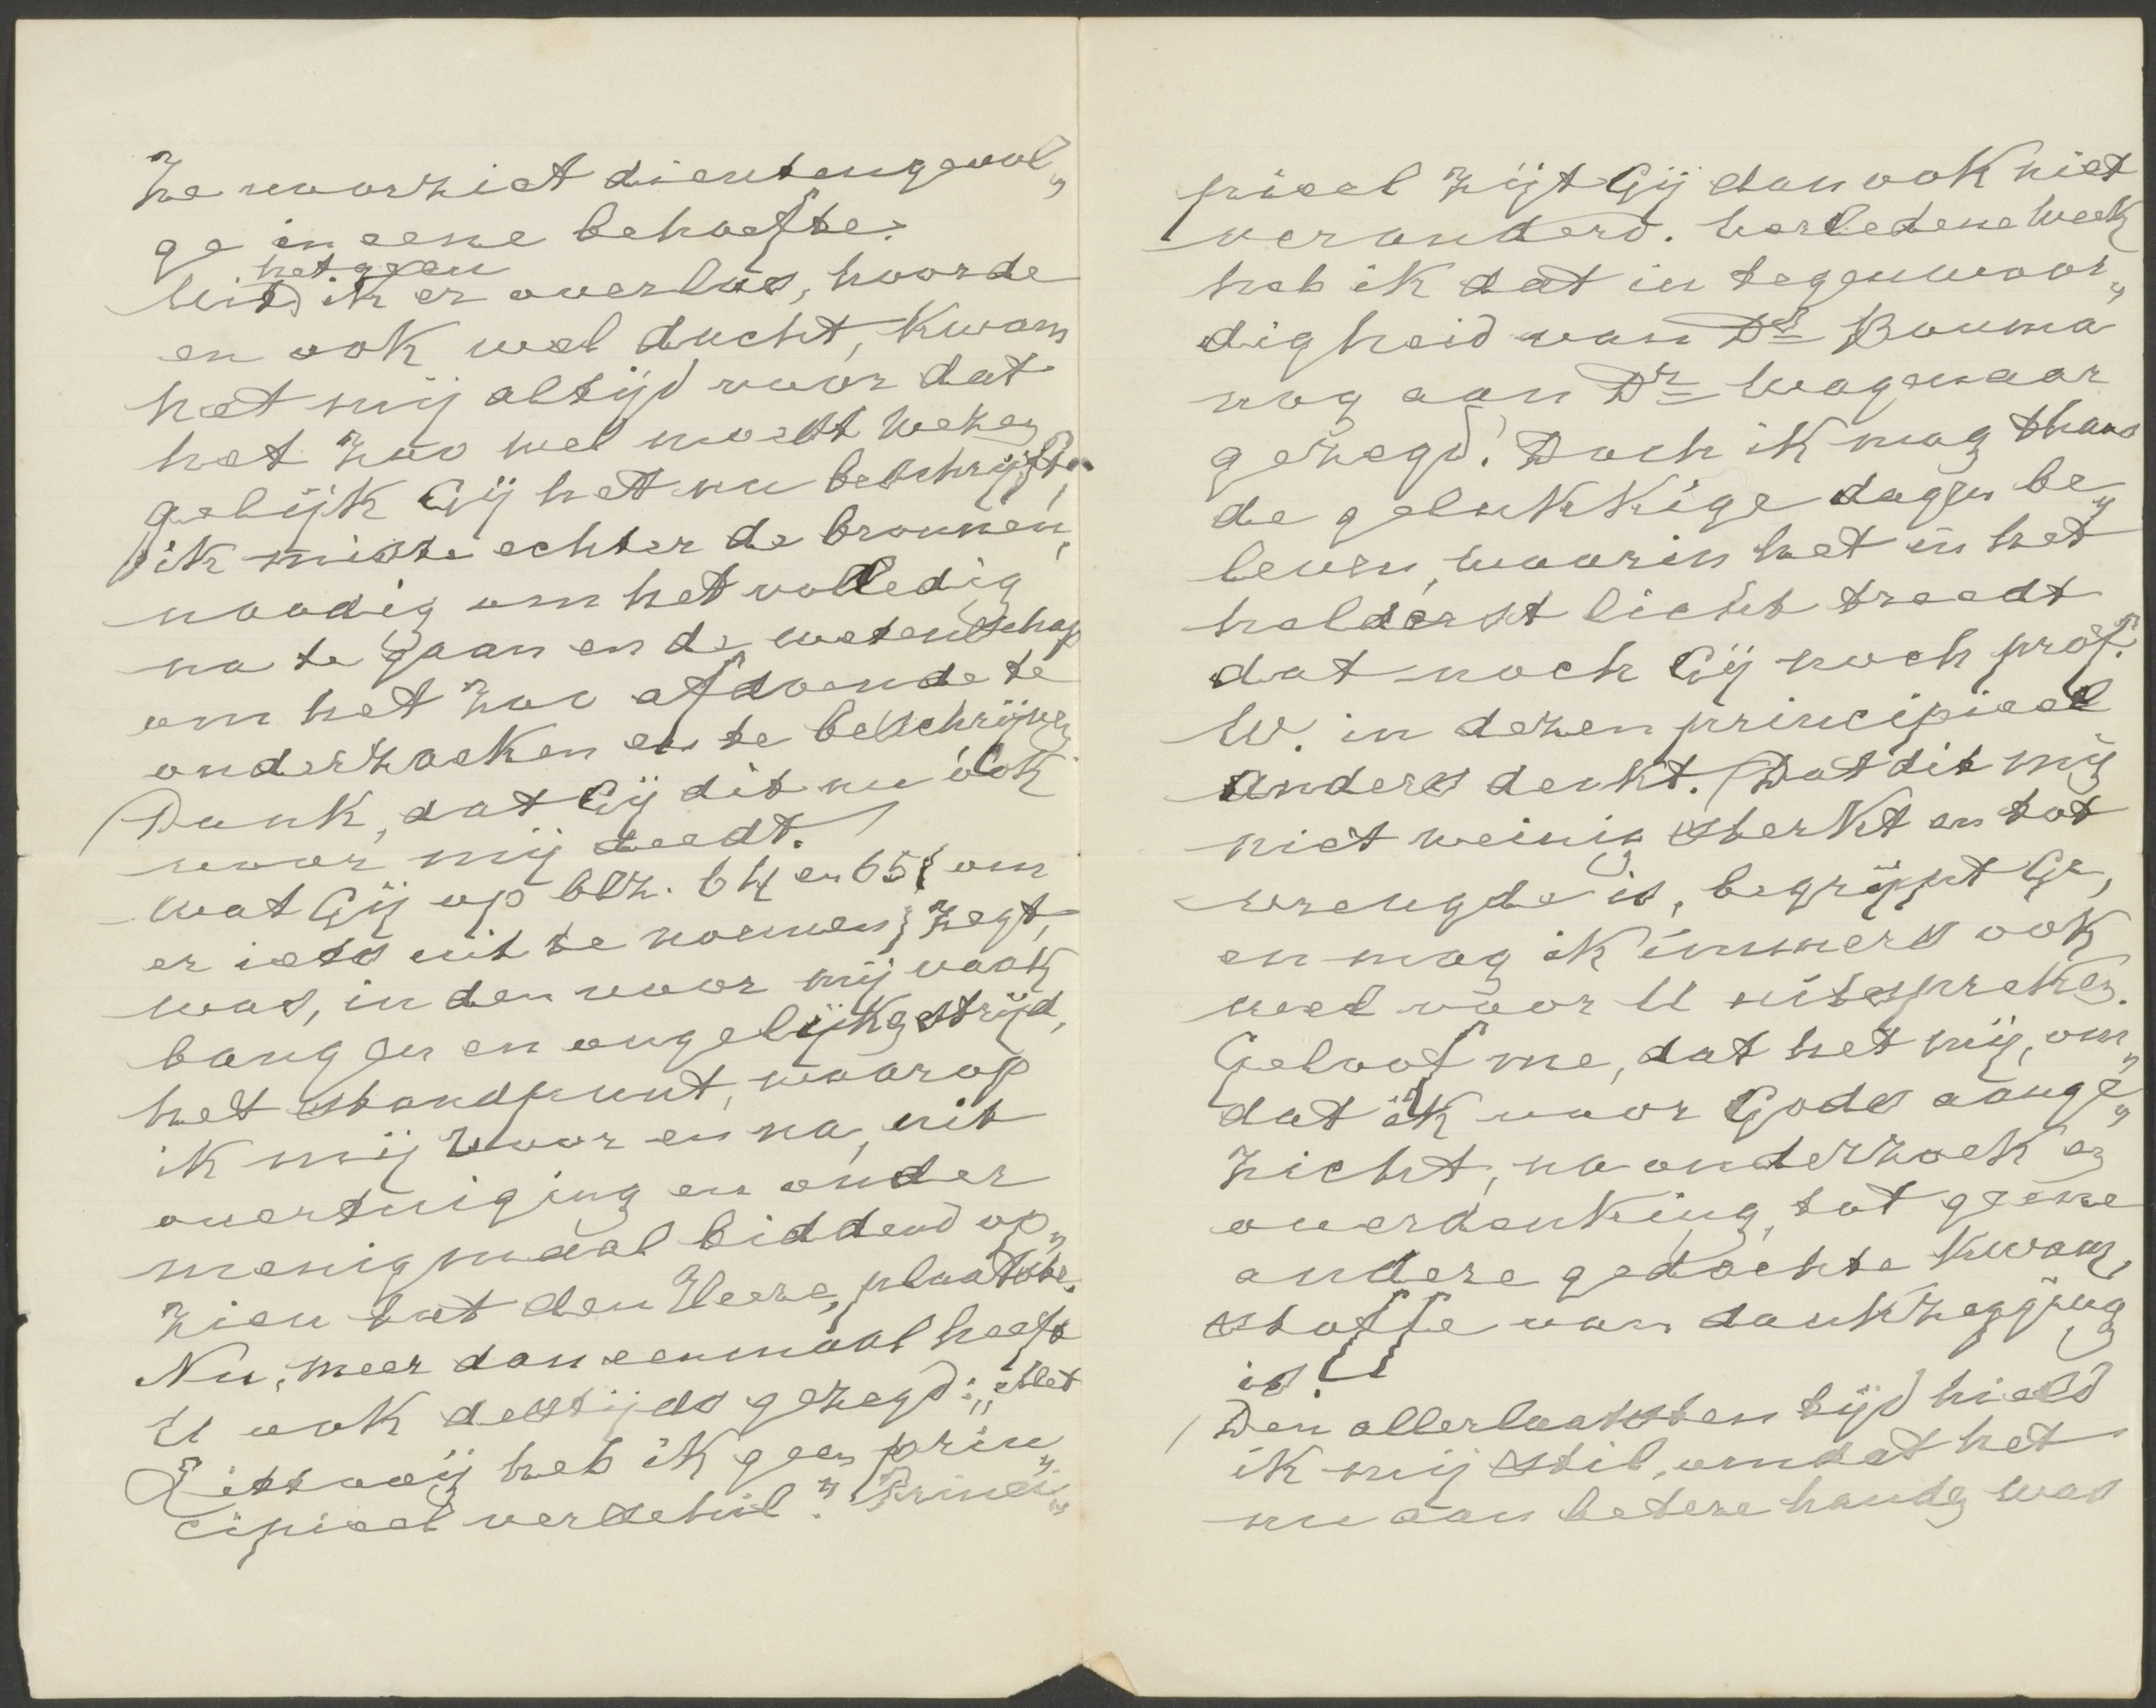 Ze voorziet dientengevol„
ge in eene behoefte.
hetgeen
Uit ik er over las, hoorde
en ook wel dacht, kwam
het mij altijd voor dat
het zoo wel moest wezen
gelijk Gij het nu beschrijft,
ik miste echter de bronnen,
noodig om het volledig
na te gaan en de wetenschap
om het zoo afdoende te
onderzoeken en te beschrijven.
Dank, dat Gij dit nu ook
voor mij deedt.
Wat Gij op blz. 64 en 65 { om
er iets uit te noemen } zegt,
was, in den voor mij vaak
bangen en ongelijk strijd,
het standpunt, waarop
ik mij voor en na, uit
overtuiging en onder
menigmaal biddend op„
zien tot den Heere, plaatste.
Nu, meer dan eenmaal heeft
U ook destijds gezegd: „Met
Littooij heb ik geen prin„
cipieel verschil." Princi„
pieel zijt Gij dan ook niet
veranderd. Verledene week
heb ik dat in tegenwoor„
digheid van Ds Bouma
nog aan Dr Wagenaar
gezegd. Doch ik mag thans
de gelukkige dagen be„
leven, waarin het in het
helderst licht treedt
dat noch Gij noch prof.
W. in dezen principieel
anders denkt. Dat dit mij
niet weinig sterkt en tot
vreugde is, begrijpt Ge,
en mag ik immers ook
wel voor U uitspreken.
Geloof me, dat het mij, om„
dat ik voor Gods aange„
zicht, na onderzoek en
overdenking, tot geene
andere gedachte kwam,
stoffe van dankzegging
is.
Den allerlaatsten tijd hield
ik mij stil, omdat het
nu aan betere handen was